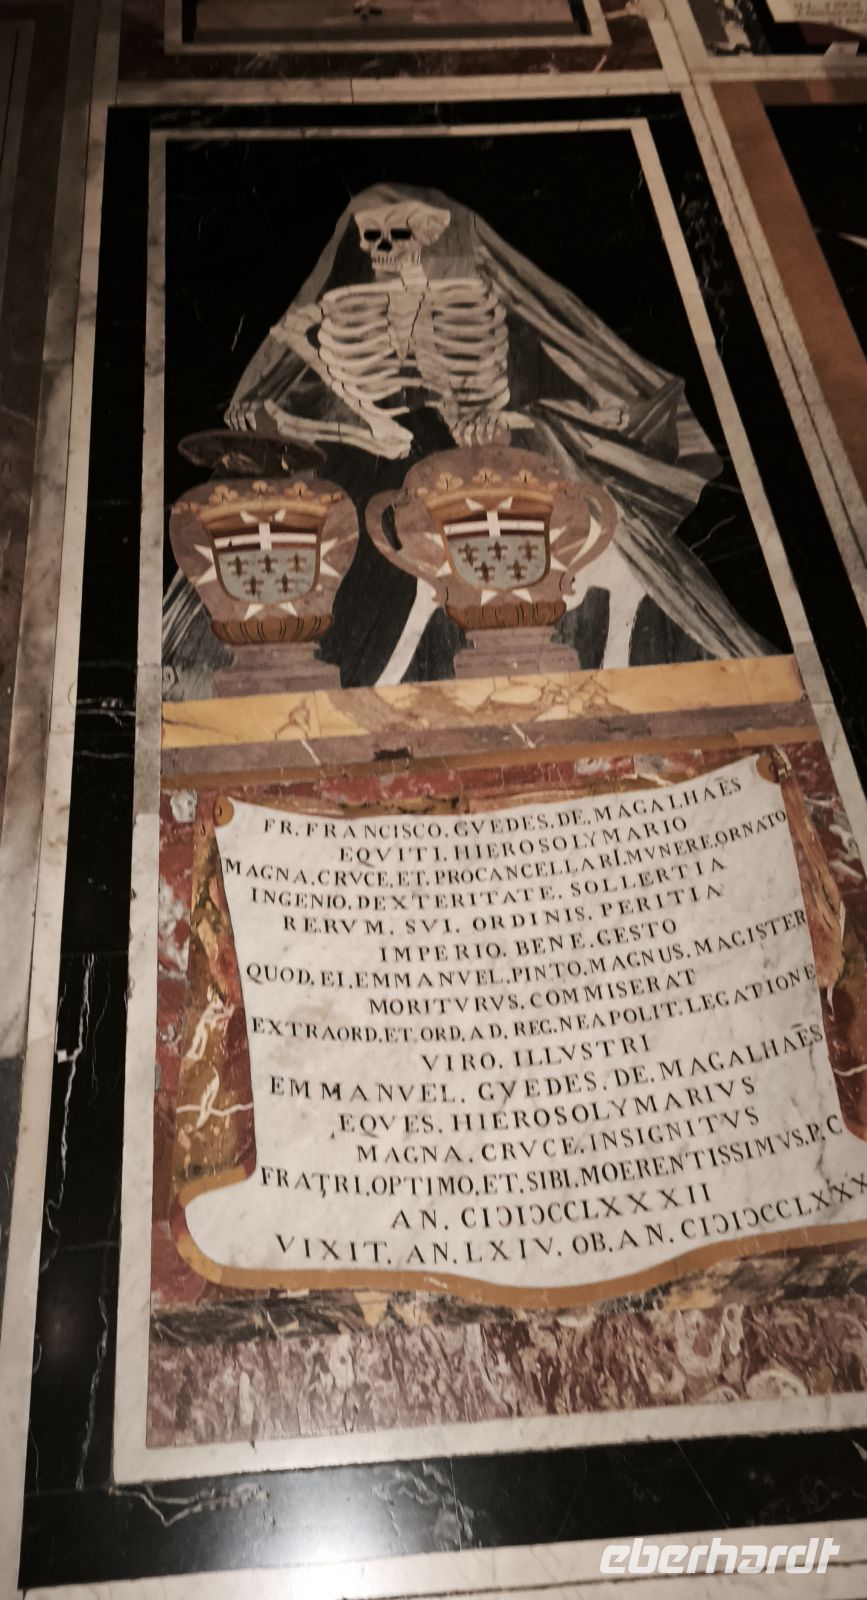 FR. FRANCISCO. GVEDES. DE. MAGALHAẼS
EQVITI. HIEROSOLYMARIO
MAGNA. CRVCE. ET. PROCANCELLARI. MVNERE. ORNATO
INGENIO. DEXTERITATE. SOLLERTIA
RERVM. SVI. ORDINIS. PERITIA
IMPERIO. BENE. GESTO
QUOD. EI. EMMANVEL. PINTO. MAGNUS. MAGISTER
MORITVRVS. COMMISERAT
EXTRAORD. ET. ORD. AD. REG. NEAPOLIT. LEGATIONE
VIRO. ILLVSTRI
EMMANVEL. GVEDES. DE. MAGALHAẼS
EQVES. HIEROSOLYMARIVS
MAGNA. CRVCE. INSIGNITVS
FRATRI. OPTIMO. ET. SIBI. MOERENTISSIMVS. P. C
AN. CIƆIƆCCLXXXII
VIXIT. AN. LXIV. OB. AN. CIƆIƆCCLXXX
eberhardt